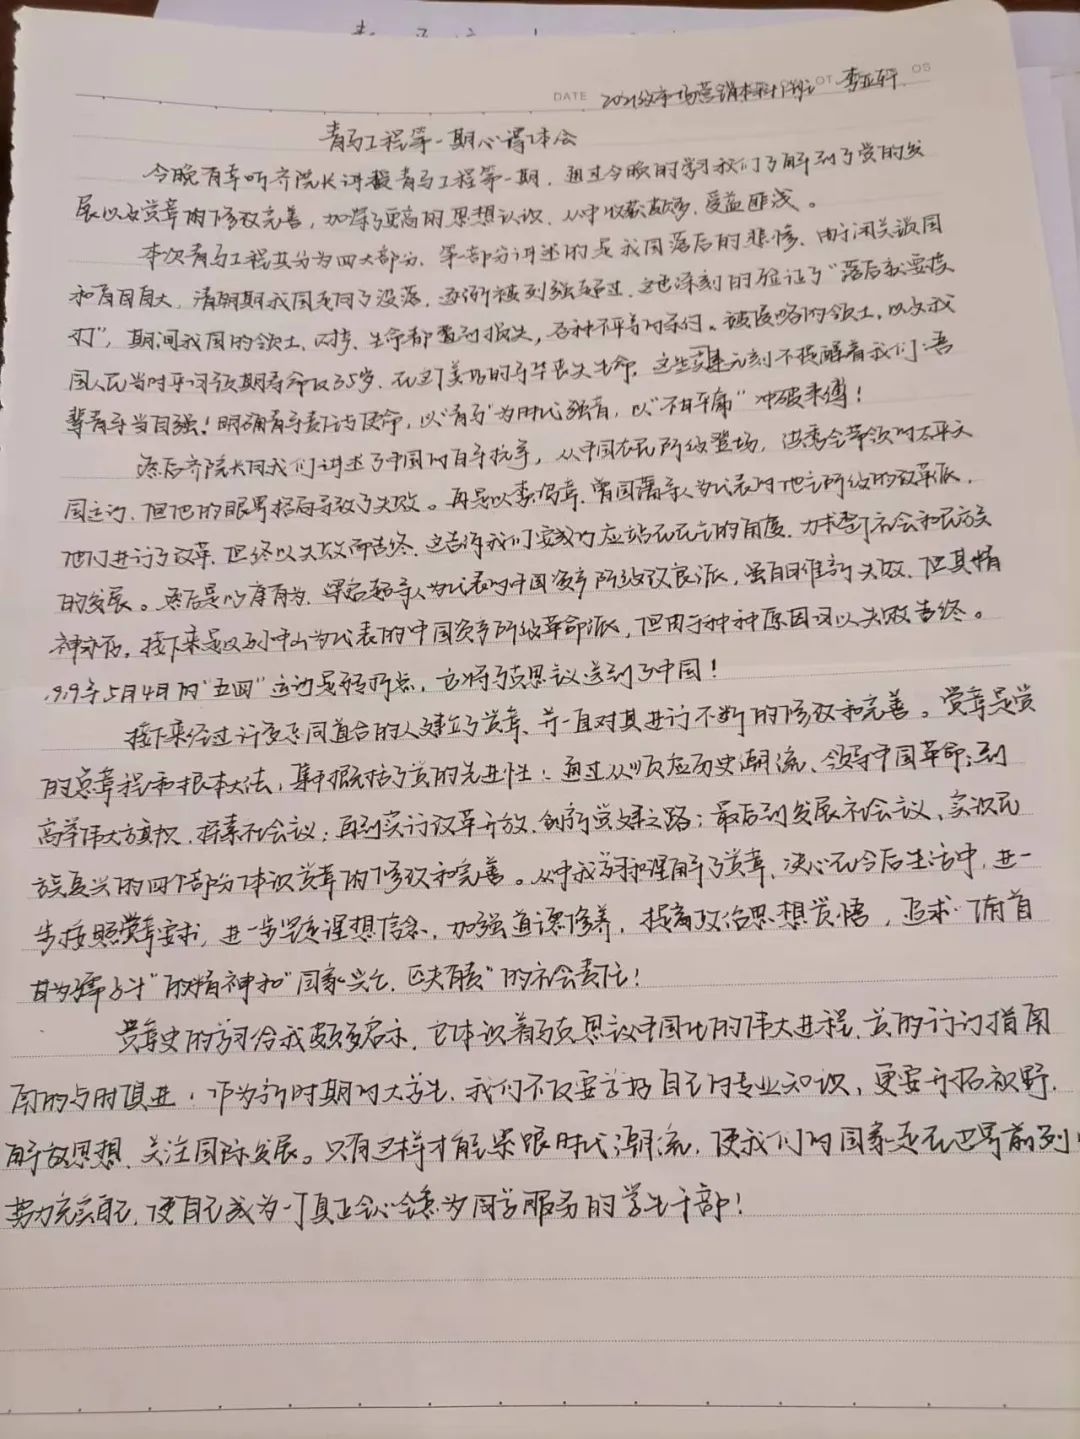 DATE 2021级市场营销本科1班 李亚轩
青马工程第一期心得体会
今晚有幸听齐院长讲授青马工程第一期，通过今晚的学习我们了解到了党的发
展以及党章的修改完善，加深了更高的思想认识，从中收获颇多，受益匪浅。
本次青马工程共分为四大部分，第一部分讲述的是我国落后的悲惨，由于闭关锁国
和盲目自大，清朝期我国走向了没落，逐渐被列强超过，这也深刻的验证了“落后就要挨
打”，期间我国的领土、财产、生命都遭到损失，各种不平等的条约。被侵略的领土，以及我
国人民当时平均预期寿命仅35岁，在正美好的年华丧失生命，这些无刻不提醒着我们：吾
辈青年当自强！明确青年责任与使命，以“青马”为时代强音，以“不平庸”冲破束缚！
然后齐院长向我们讲述了中国的百年抗争，从中国农民阶级登场，洪秀全带领的太平天
国运动，但他的眼界格局导致了失败。再是以李鸿章、曾国藩等人为代表的地主阶级的改革派，
他们进行了改革，但终以失败而告终，这告诉我们安我们应站在民主的角度，力求整个社会和民族
的发展。然后是以康有为、梁启超等人为代表的中国资产阶级改良派，虽百日维新失败，但其精
神亦存。接下来是以孙中山为代表的中国资产阶级革命派，但由于种种原因又以失败告终。
1919年5月4日的“五四”运动是转折点，它将马克思主义送到了中国！
接下来经过许多志同道合的人建立了党章，并一直对其进行不断的修改和完善。党章是党
的总章程和根本大法，集中概括了党的先进性：通过从顺应历史潮流、领导中国革命；到
高举伟大旗帜，探索社会主义；再到实行改革开放，创新党建之路；最后到发展社会主义、实现民
族复兴的四个部分体现党章的修改和完善。从中我学习和理解了党章，决心在今后生活中，进一
步按照党章要求，进一步坚定理想信念，加强道德修养，提高政治思想觉悟，追求“俯首
甘为孺子牛”的精神和“国家兴亡，匹夫有责”的社会责任！
党章史的学习给我颇多启示，它体现着马克思主义中国化的伟大进程，党的行动指南
南的与时俱进；作为新时期的大学生，我们不仅要学好自己的专业知识，更要开拓视野，
解放思想，关注国际发展。只有这样才能紧跟时代潮流，使我们的国家走在世界前列！
努力充实自己，使自己成为一个真正全心全意为同学服务的学生干部！